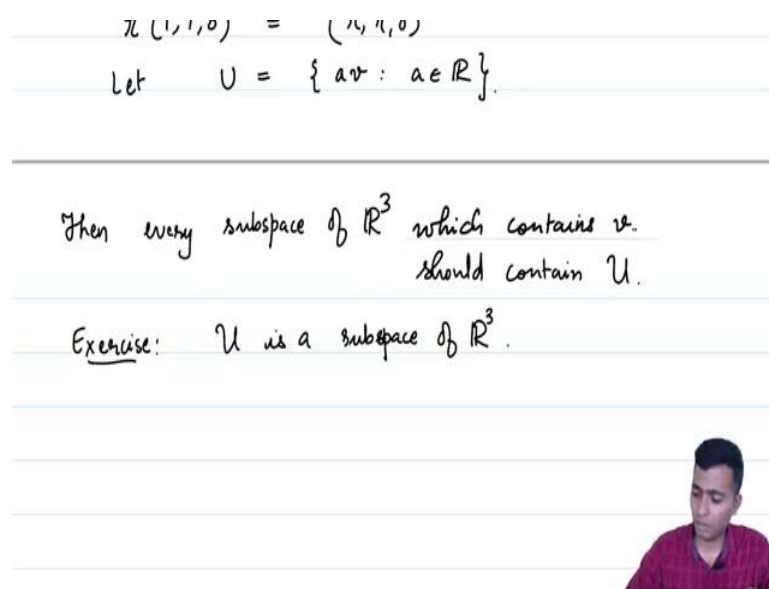 π (1,1,0) = (π, π, 0)
Let U = { av : a ∈ ℝ }.
Then every subspace of ℝ³ which contains v.
should contain U.
Exercise: U is a subspace of ℝ³.